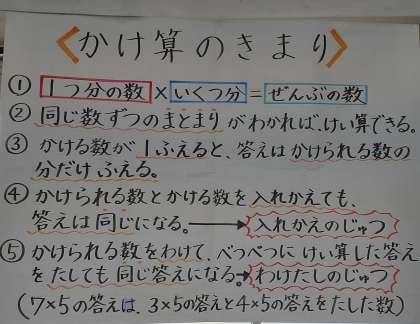 〈かけ算のきまり〉
① 1つ分の数×いくつ分=ぜんぶの数
② 同じ数ずつのまとまりがわかれば、けい算できる。
③ かける数が1ふえると、答えはかけられる数の
分だけふえる。
④ かけられる数とかける数を入れかえても、
答えは同じになる。→入れかえのじゅつ
⑤ かけられる数をわけて、べつべつにけい算した答え
をたしても同じ答えになる→わけたしのじゅつ
(7×5の答えは、3×5の答えと4×5の答えをたした数)